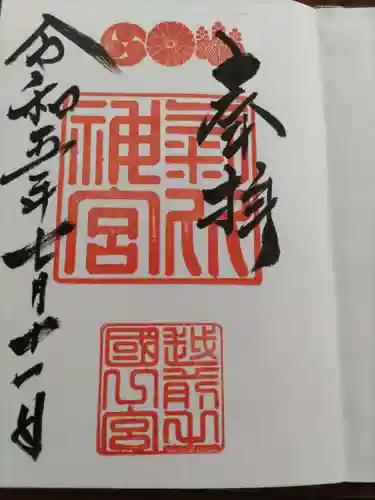 奉拝
氣比
神宮
越前之
國一宮
令和五年七月十一日